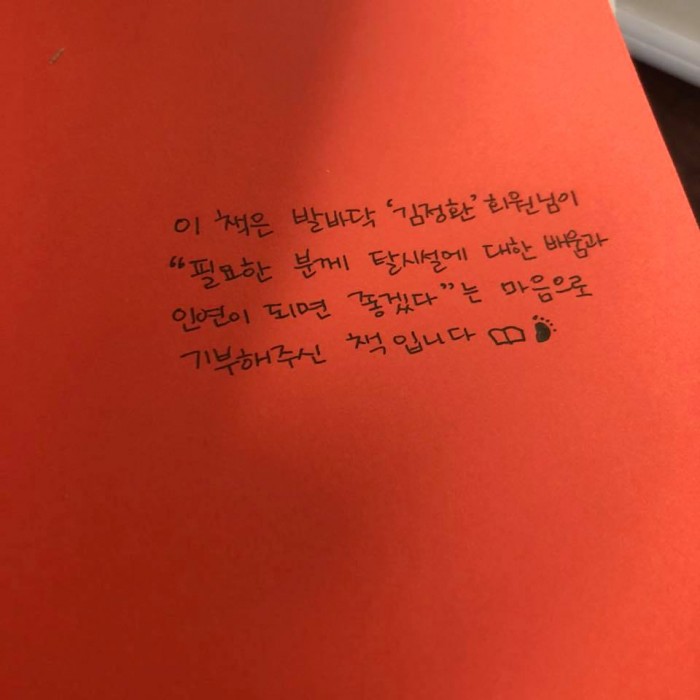 이 책은 발바닥 '김정환' 회원님이
"필요한 분께 탈시설에 대한 배움과
인연이 되면 좋겠다"는 마음으로
기부해주신 책입니다